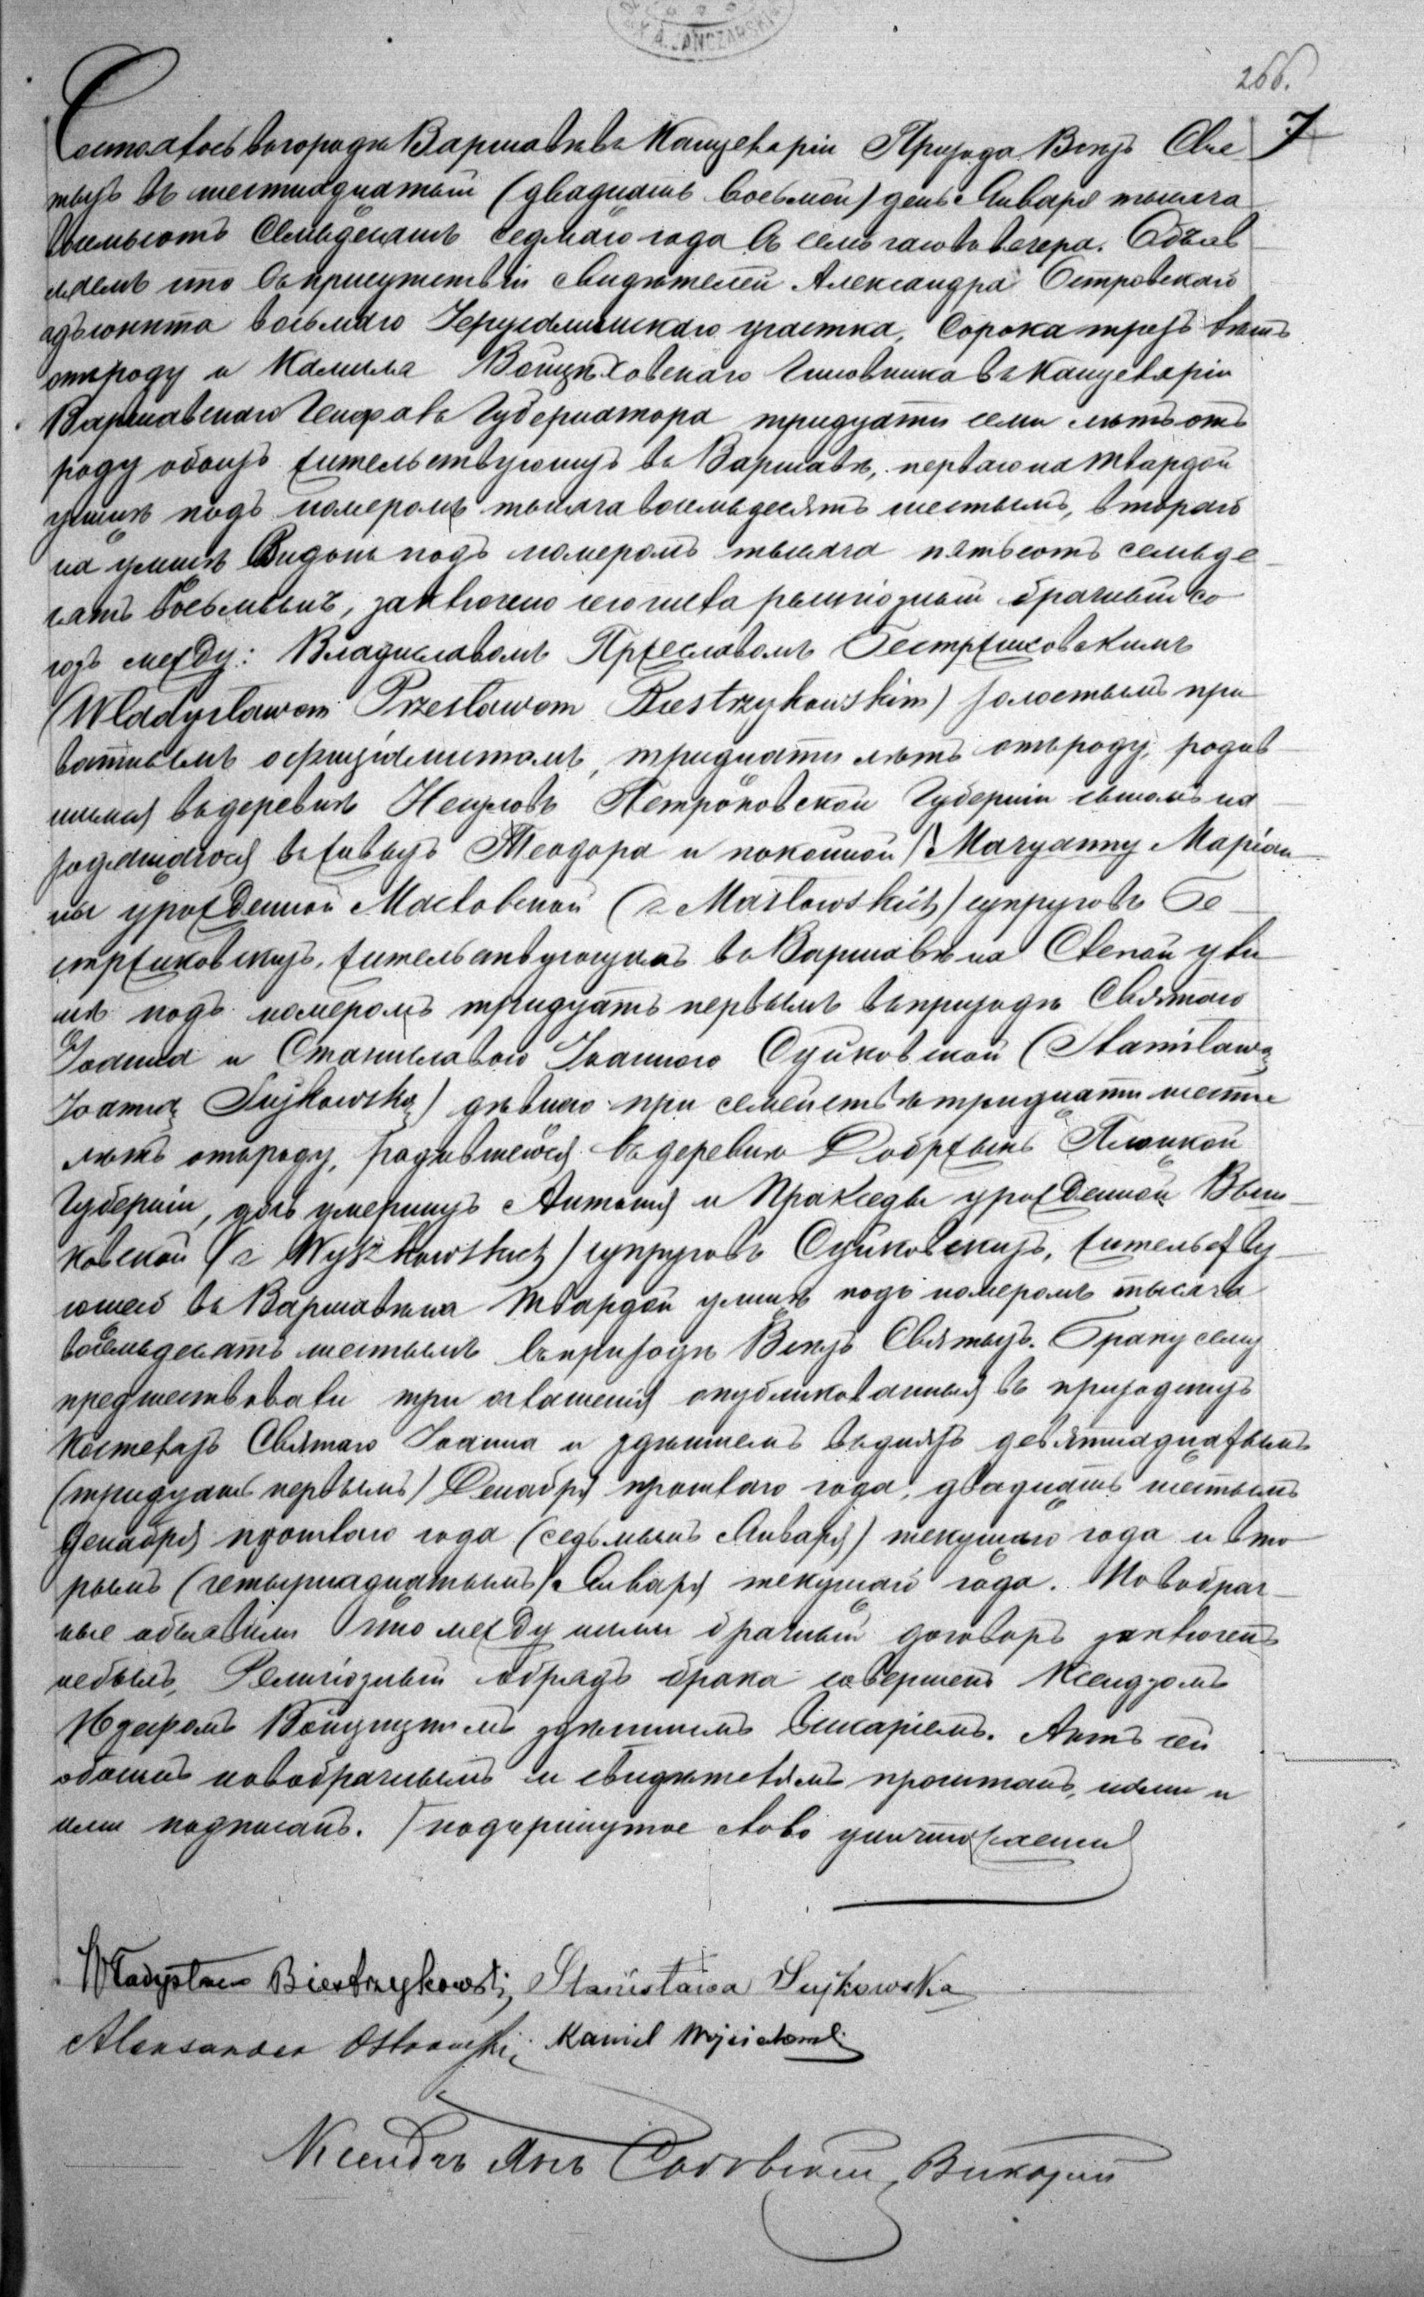 A. JAŃCZARSKI
266.
7
Состоялось въ городѣ Варшавѣ въ Канцеляріи Прихода Всѣхъ Свя
тыхъ въ шестнадцатый (двадцать восьмой) день Января тысяча
восемьсотъ семьдесятъ седмаго года въ семь часовъ вечера. Объяв
ляемъ что въ присутствіи свидѣтелей Александра Островскаго
адъюнкта восьмаго Іерусалимскаго участка, сорока трехъ лѣтъ
отъ роду и Камилла Войцѣховскаго Чиновника въ Канцеляріи
Варшавскаго Генералъ Губернатора тридцати семи лѣтъ отъ
роду обоихъ жительствующихъ въ Варшавѣ, перваго на Твардой
улицѣ подъ номеромъ тысяча восемьдесятъ шестымъ, втораго
на улицѣ Видокъ подъ номеромъ тысяча пятьсотъ семьде
сятъ восьмымъ, заключено сего числа религіозный брачный со
юзъ между: Владиславомъ Пржеславомъ Бестржиковскимъ
(Władysławem Przesławem Biestrzykowskim) холостымъ при
ватнымъ оффиціалистомъ, тридцати лѣтъ отъ роду, родив
шимся въ деревнѣ Петроковской Губерніи сыномъ на
ходящагося въ живыхъ Теодора и покойной / Maryanny Маріан
ны урожденной Масловской (z Masłowskich) супруговъ Бе
стржиковскихъ, жительствующимъ въ Варшавѣ на ули
цѣ подъ номеромъ тридцать первымъ въ приходѣ Святаго
Іоанна и Станиславою Іоанною Суйковской (Stanisławą
Joanną Sujkowską) дѣвицею при семействѣ тридцати шести
лѣтъ отъ роду, родившейся въ деревнѣ Добржынь Плоцкой
Губерніи, дочь умершихъ Антонія и Пракседы урожденной Выш
ковской (z Wyszkowskich) супруговъ Суйковскихъ, жительству
ющей въ Варшавѣ на Твардой улицѣ подъ номеромъ тысяча
восемьдесятъ шестымъ въ приходѣ Всѣхъ Святыхъ. Браку сему
предшествовали три оглашенія опубликованныя въ приходскихъ
костелахъ Святаго Іоанна и здѣшнемъ въ дняхъ девятнадцатымъ
(тридцать первымъ) Декабря прошлаго года, двадцать шестымъ
Декабря прошлаго года (седьмымъ Января) текущаго года и вто
рымъ (четырнадцатымъ) Января текущаго года. Новобрач
ные объявили что между ними брачный договоръ заключенъ
небылъ. Религіозный обрядъ брака совершенъ Ксендзомъ
Юзефомъ здѣшнимъ Викаріемъ. Актъ сей
обоимъ новобрачнымъ и свидѣтелямъ прочитанъ, нами и
ими подписанъ. / подчеркнутое слово уничтожаемъ
Władysław Biestrzykowski, Stanisława Sujkowska
Aleksander Ostrowski; Kamil Wojciechowski
Ксендзъ Янъ Викарій